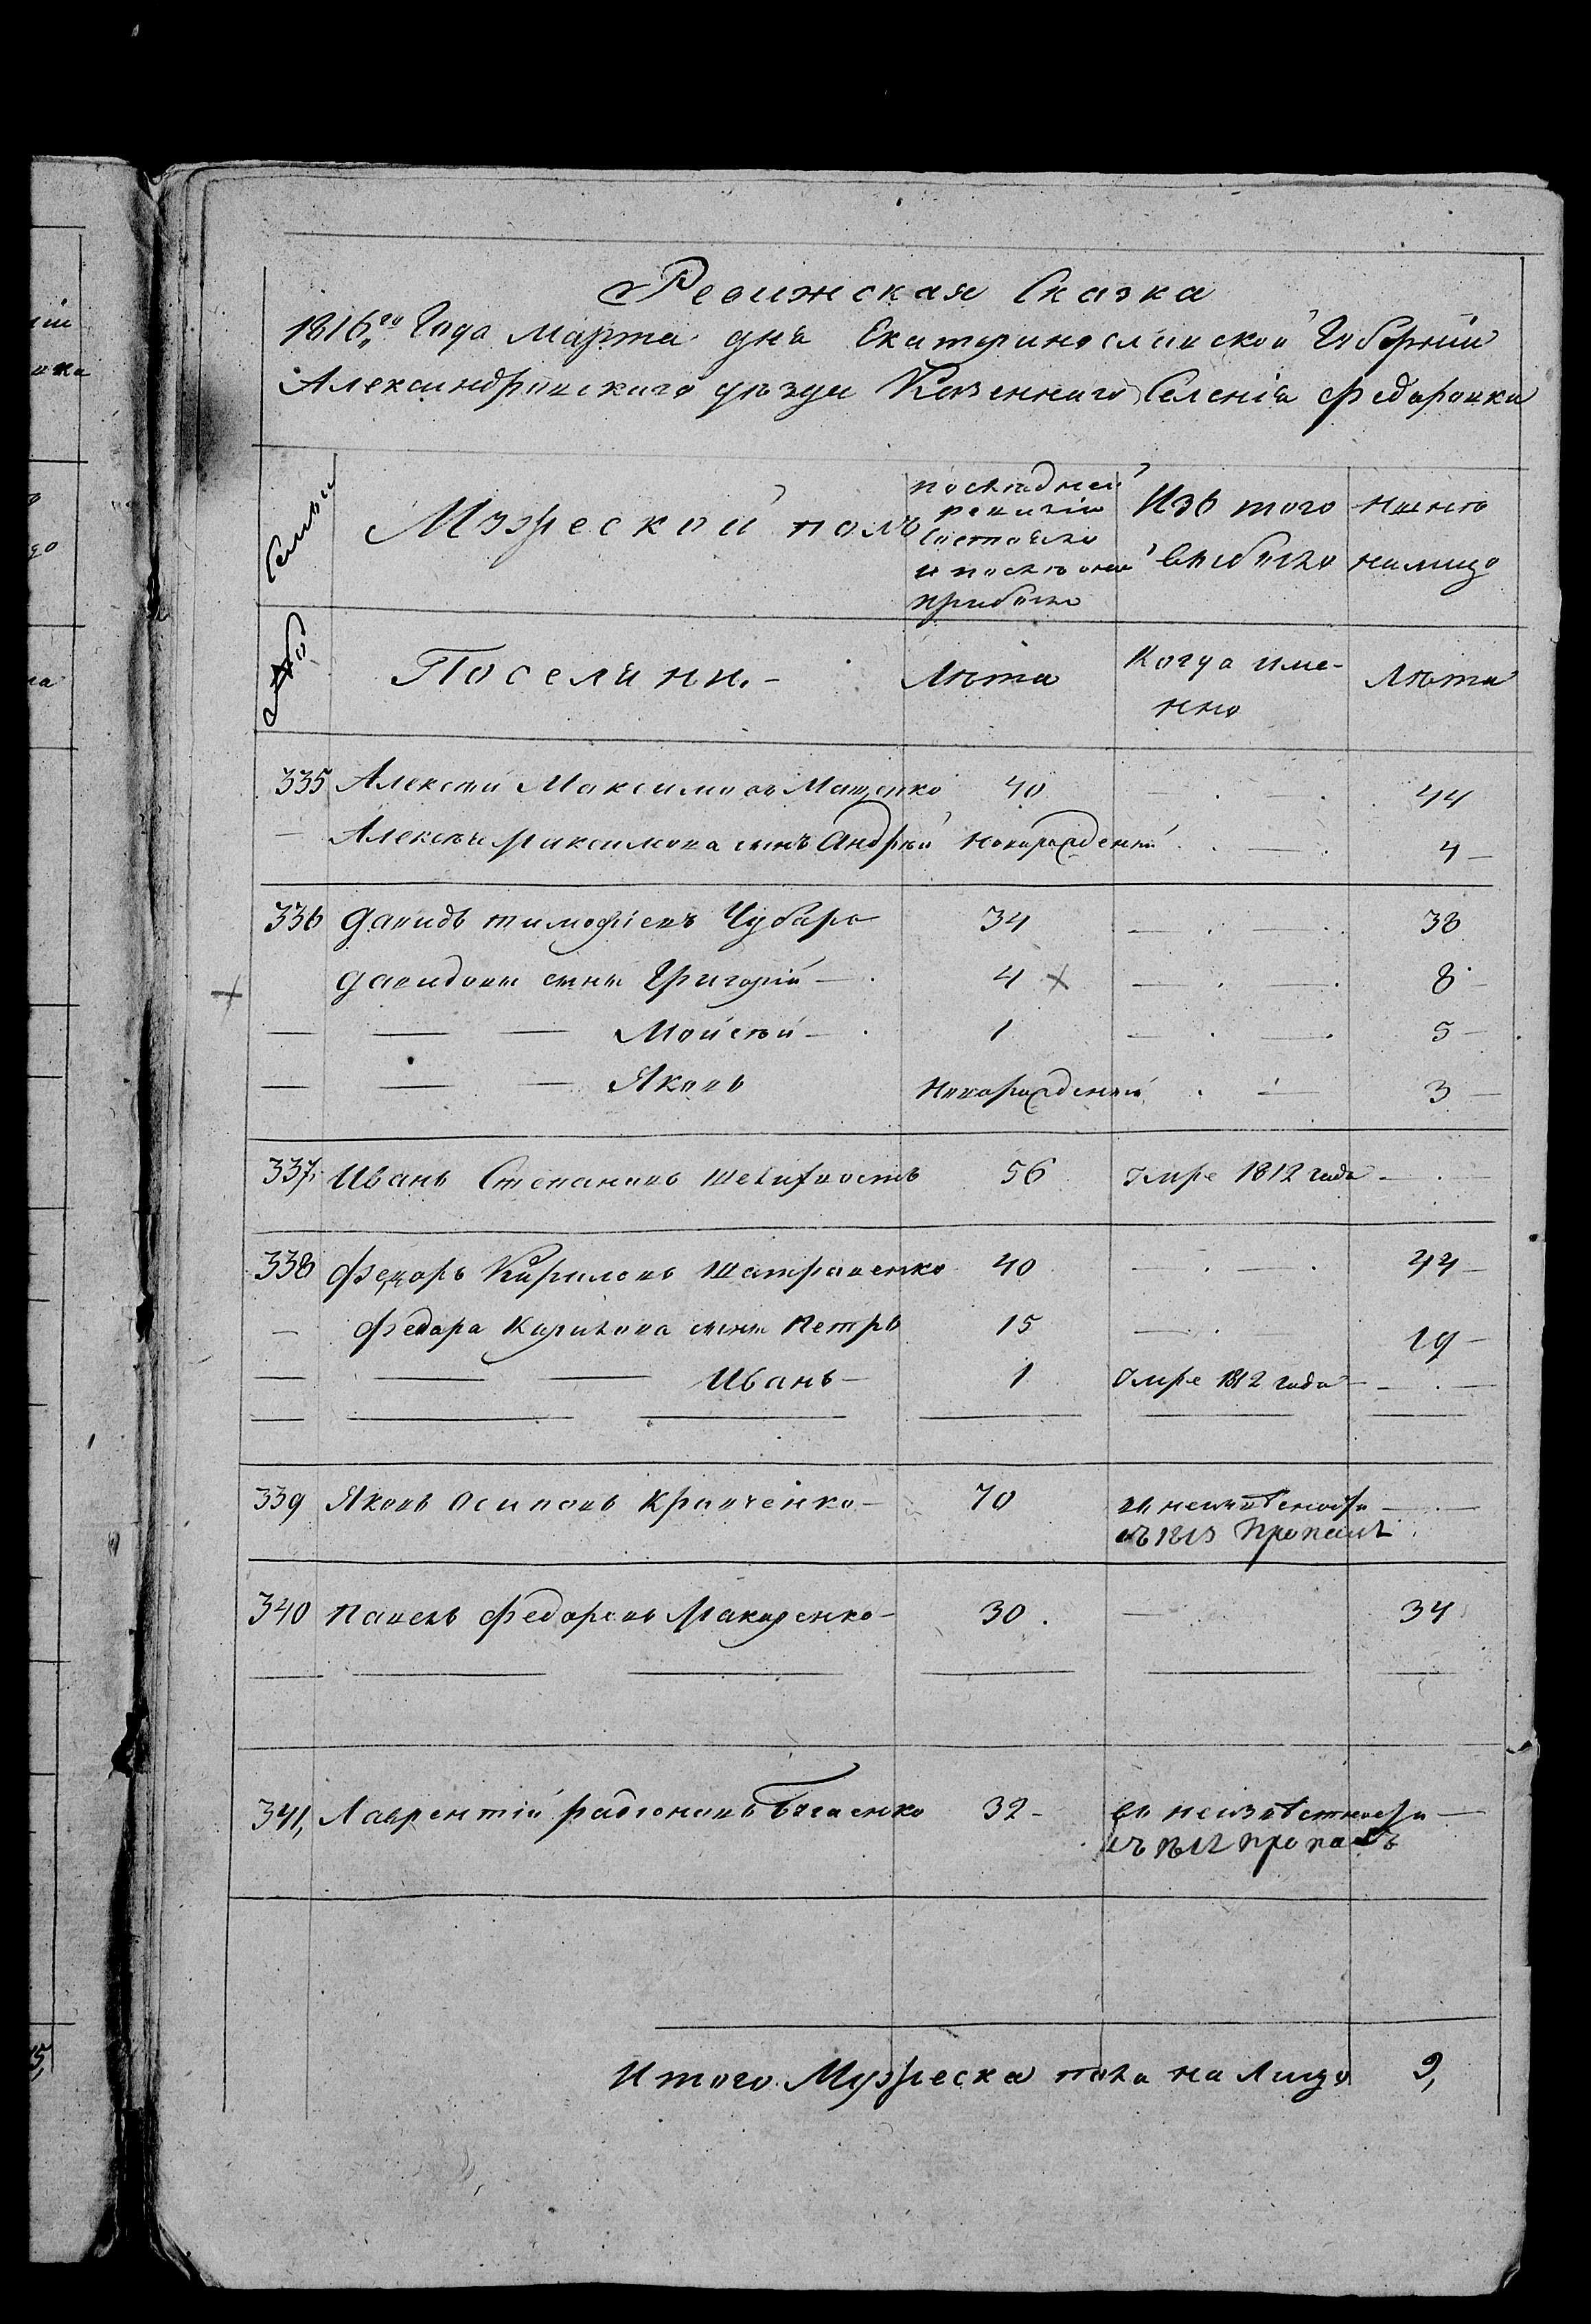 Ревижская Сказка
1816го Года Марта дня Екатеринославской Губернии
Александровскаго уезда Казеннаго Селения Федоровка
Семьи
Мужеской полъ
последней
ревизии
состояло
и после оной
прибыло
Изъ того
выбыло
ныне
налицо
№
Поселяни.-
Лета
Когда име-
нно
Лета
335 Алексей Максимовъ Мащенко 40 44
Алексея Максимова сынъ Андрей новорожденный 4
336 Давидъ тимофеевъ Чубарь 34 38
Давидова сынъ Григорий 4 8
Мойсей 1 5
Яковъ Новорожденный 3
337 Иванъ Степановъ 56 Умре 1812 года
338 Федоръ Кириловъ Шатравенко 40 44
Федора Кирилова сынъ Петръ 15 19
Иванъ 1 Умре 1812 года
339 Яковъ Осиповъ Кравченко 70 въ неизвестности
съ 1813 пропалъ
340 Павелъ Федоровъ Макаренко 30 34
341 Лаврентий радионовъ 32 въ неизвестности
съ 1812 пропалъ
Итого Мужеска пола на Лицо 9,